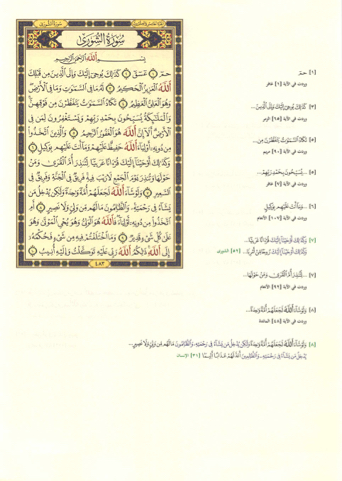 سُورَةُ الشُّورَىٰ
بِسْمِ اللَّهِ الرَّحْمَٰنِ الرَّحِيمِ
حمٓ ۝١ عٓسٓقٓ ۝٢ كَذَٰلِكَ يُوحِىٓ إِلَيْكَ وَإِلَى ٱلَّذِينَ مِن قَبْلِكَ
ٱللَّهُ ٱلْعَزِيزُ ٱلْحَكِيمُ ۝٣ لَهُۥ مَا فِى ٱلسَّمَٰوَٰتِ وَمَا فِى ٱلْأَرْضِ
وَهُوَ ٱلْعَلِىُّ ٱلْعَظِيمُ ۝٤ تَكَادُ ٱلسَّمَٰوَٰتُ يَتَفَطَّرْنَ مِن فَوْقِهِنَّ
وَٱلْمَلَٰٓئِكَةُ يُسَبِّحُونَ بِحَمْدِ رَبِّهِمْ وَيَسْتَغْفِرُونَ لِمَن فِى
ٱلْأَرْضِ أَلَآ إِنَّ ٱللَّهَ هُوَ ٱلْغَفُورُ ٱلرَّحِيمُ ۝٥ وَٱلَّذِينَ ٱتَّخَذُوا۟
مِن دُونِهِۦٓ أَوْلِيَآءَ ٱللَّهُ حَفِيظٌ عَلَيْهِمْ وَمَآ أَنتَ عَلَيْهِم بِوَكِيلٍ ۝٦
وَكَذَٰلِكَ أَوْحَيْنَآ إِلَيْكَ قُرْءَانًا عَرَبِيًّا لِّتُنذِرَ أُمَّ ٱلْقُرَىٰ وَمَنْ
حَوْلَهَا وَتُنذِرَ يَوْمَ ٱلْجَمْعِ لَا رَيْبَ فِيهِ فَرِيقٌ فِى ٱلْجَنَّةِ وَفَرِيقٌ فِى
ٱلسَّعِيرِ ۝٧ وَلَوْ شَآءَ ٱللَّهُ لَجَعَلَهُمْ أُمَّةً وَٰحِدَةً وَلَٰكِن يُدْخِلُ مَن
يَشَآءُ فِى رَحْمَتِهِۦ وَٱلظَّٰلِمُونَ مَا لَهُم مِّن وَلِىٍّ وَلَا نَصِيرٍ ۝٨ أَمِ
ٱتَّخَذُوا۟ مِن دُونِهِۦٓ أَوْلِيَآءَ فَٱللَّهُ هُوَ ٱلْوَلِىُّ وَهُوَ يُحْىِ ٱلْمَوْتَىٰ وَهُوَ
عَلَىٰ كُلِّ شَىْءٍ قَدِيرٌ ۝٩ وَمَا ٱخْتَلَفْتُمْ فِيهِ مِن شَىْءٍ فَحُكْمُهُۥٓ
إِلَى ٱللَّهِ ذَٰلِكُمُ ٱللَّهُ رَبِّى عَلَيْهِ تَوَكَّلْتُ وَإِلَيْهِ أُنِيبُ ۝١٠
٤٨٣
[١] حمٓ
وردت في الآية [١] غافر
[٣] كَذَٰلِكَ يُوحِىٓ إِلَيْكَ وَإِلَى ٱلَّذِينَ...
وردت في الآية [٦٥] الزمر
[٥] تَكَادُ ٱلسَّمَٰوَٰتُ يَتَفَطَّرْنَ مِن...
وردت في الآية [٩٠] مريم
[٥] ...يُسَبِّحُونَ بِحَمْدِ رَبِّهِمْ...
وردت في الآية [٧] غافر
[٦] ...وَمَآ أَنتَ عَلَيْهِم بِوَكِيلٍ
وردت في الآية [١٠٧] الأنعام
[٧] وَكَذَٰلِكَ أَوْحَيْنَآ إِلَيْكَ قُرْءَانًا عَرَبِيًّا...
وَكَذَٰلِكَ أَوْحَيْنَآ إِلَيْكَ رُوحًا مِّنْ أَمْرِنَا... [٥٢] الشورى
[٧] ...لِّتُنذِرَ أُمَّ ٱلْقُرَىٰ وَمَنْ حَوْلَهَا...
وردت في الآية [٩٢] الأنعام
[٨] وَلَوْ شَآءَ ٱللَّهُ لَجَعَلَهُمْ أُمَّةً وَٰحِدَةً...
وردت في الآية [٤٨] المائدة
[٨] وَلَوْ شَآءَ ٱللَّهُ لَجَعَلَهُمْ أُمَّةً وَٰحِدَةً وَلَٰكِن يُدْخِلُ مَن يَشَآءُ فِى رَحْمَتِهِۦ وَٱلظَّٰلِمُونَ مَا لَهُم مِّن وَلِىٍّ وَلَا نَصِيرٍ...
يُدْخِلُ مَن يَشَآءُ فِى رَحْمَتِهِۦ وَٱلظَّٰلِمِينَ أَعَدَّ لَهُمْ عَذَابًا أَلِيمًا [٣١] الإنسان